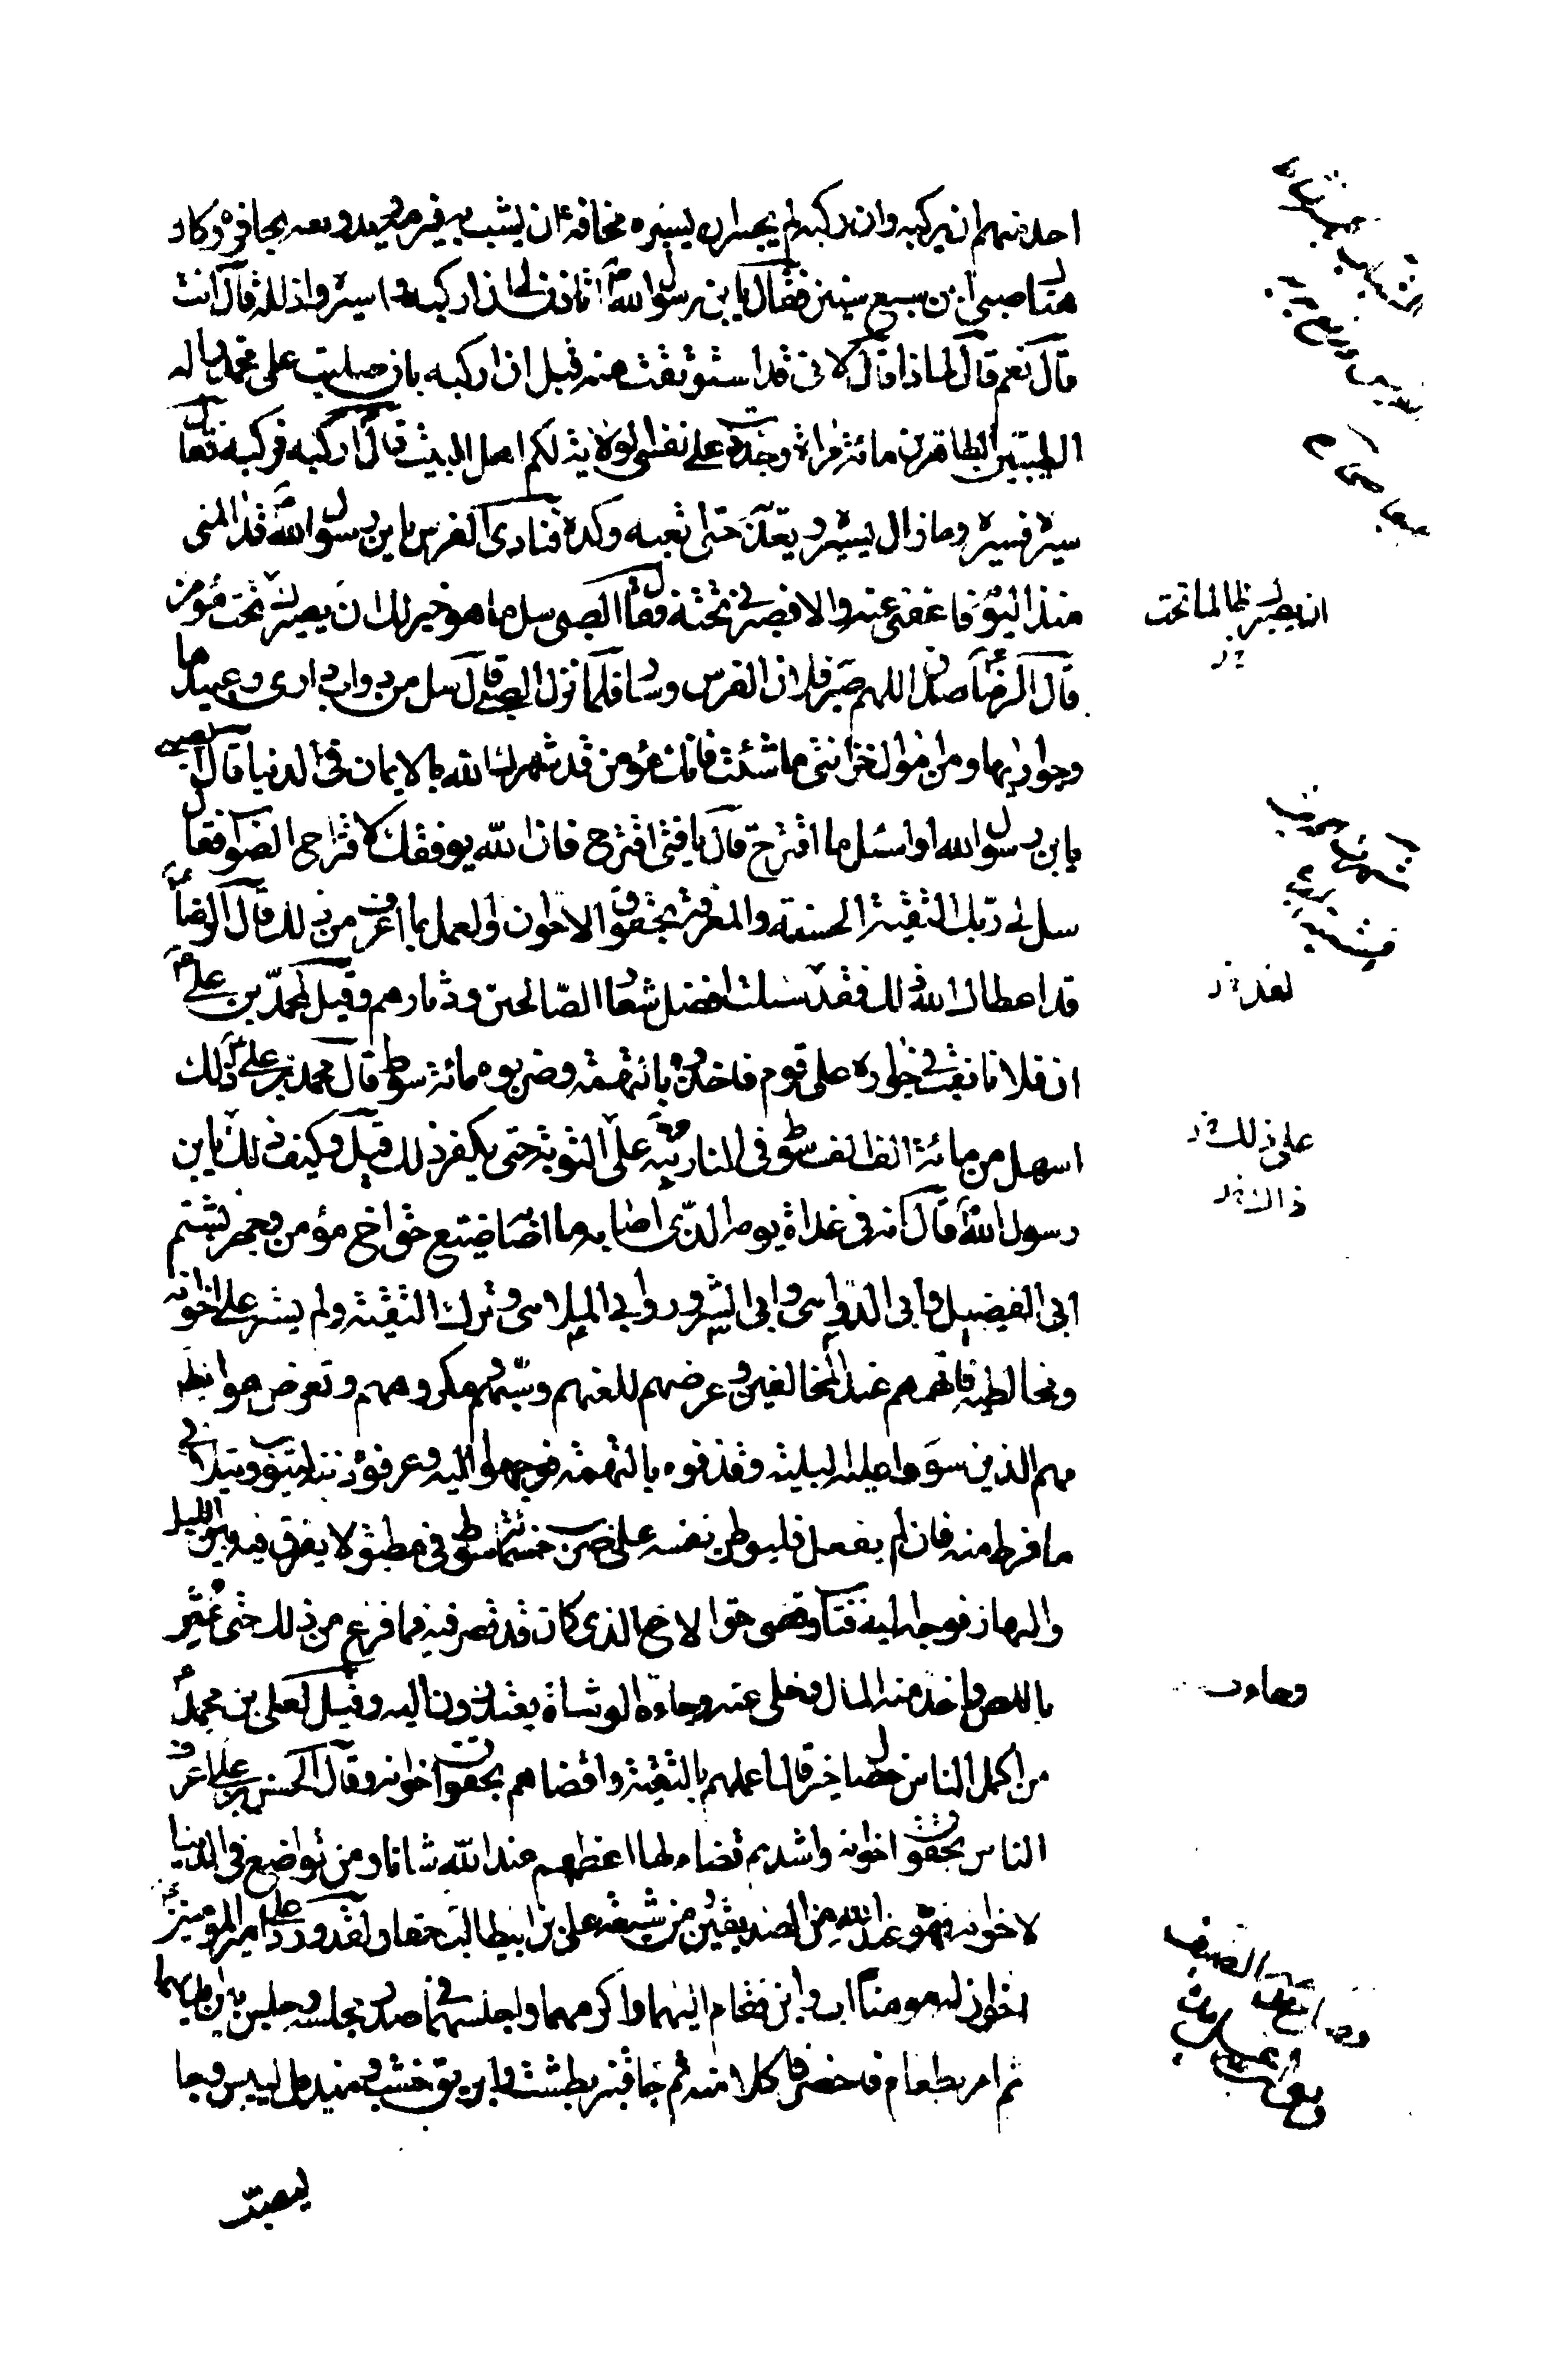 احد منهم ان يركبه وان ركبه لم يجسر ان يسيره مخافة ان يشب به فيرميه ويدوسه بحافره وكان
هناك صبي ابن سبع سنين فقال يا بن رسول الله ا تاذن لي ان اركبه و اسيره واذلله قال انت
قال نعم قال لماذا قال لاني قد استوثقت منه قبل ان اركبه بان صليت على محمد واله
الطيبين الطاهرين مائة مرة وجددت على نفسي الولاية لكم اهل البيت قال اركبه فركبه فقال
سيره فسيره وما زال يسيره ويعديه حتى تعبه وكده فنادى الفرس يا بن رسول الله قد المني
منذ اليوم فاعفني عنه والا فصبرني تحته فقال الصبي سل ما هو خير لك ان يصبرك تحت مؤمن
قال الرضا صدق اللهم صبره فلان الفرس وسار فلما نزل الصبي قال سل من دواب داري وعبيدها
وجواريها ومن اموال خزائني ما شئت فانك مؤمن قد شهرك الله بالايمان في الدنيا قال الصبي
يا بن رسول الله او اسئل ما اقترح قال يا فتى اقترح فان الله يوفقك لاقتراح الصواب فقال
سل لي ربك التقية الحسنة والمعرفة بحقوق الاخوان والعمل بما اعرف من ذلك قال الرضا
قد اعطاك الله ذلك فقد سئلت افضل شعار الصالحين ودثارهم وقيل لمحمد بن علي
ان فلانا نقب في جواره على قوم فاخذوه بالتهمة وضربوه مائة سوط قال محمد بن علي ذلك
اسهل من مائة الف الف سوط في النار نبه على التوبة حتى يكفر ذلك قيل وكيف ذلك يا بن
رسول الله قال انه في غداة يومه الذي اصابه ما اصابه ضيع حق اخ مؤمن وجهر بشتم
ابي الفضيل وابي الدواهي وابي الشرور وابي الملاهي وترك التقية ولم يستر على اخوانه
ومخالطيه فاتهمهم عند المخالفين وعرضهم للعنهم وسبهم ومكروههم وتعرض هو ايضا
فهم الذين سووا عليه البلية وقذفوه بالتهمة فوجهوا اليه وعرفوه ذنبه ليتوب ويتلافى
ما فرط منه فان لم يفعل فليوطن نفسه على ضرب خمسمائة سوط في مطبق لا يفرق فيه بين الليل
والنهار فوجه اليه فتاب وقضى حق الاخ الذي كان قد قصر فيه فما فرغ من ذلك حتى عثر
باللص واخذ منه المال وخلى عنه وجاءه الوشاة يعتذرون اليه وقيل لعلي بن محمد
من اكمل الناس خصال خير قال اعملهم بالتقية واقضاهم بحقوق اخوانه وقال الحسن بن علي اعرف
الناس بحقوق اخوانه واشدهم قضاء لها اعظمهم عند الله شانا ومن تواضع في الدنيا
لاخوانه فهو عند الله من الصديقين من شيعة علي بن ابيطالب حقا ولقد ورد على امير المؤمنين
اخوان له مومنان اب وابن فقام اليهما واكرمهما واجلسهما في صدر مجلسه وجلس بين ايديهما
ثم امر بطعام فاحضر فاكلا منه ثم جاء قنبر بطشت وابريق خشب ومنديل لييبس وجاء
ان يصبرك لما تحت
لقد
على ذلك
ذاك
وجاءوت
ليصب